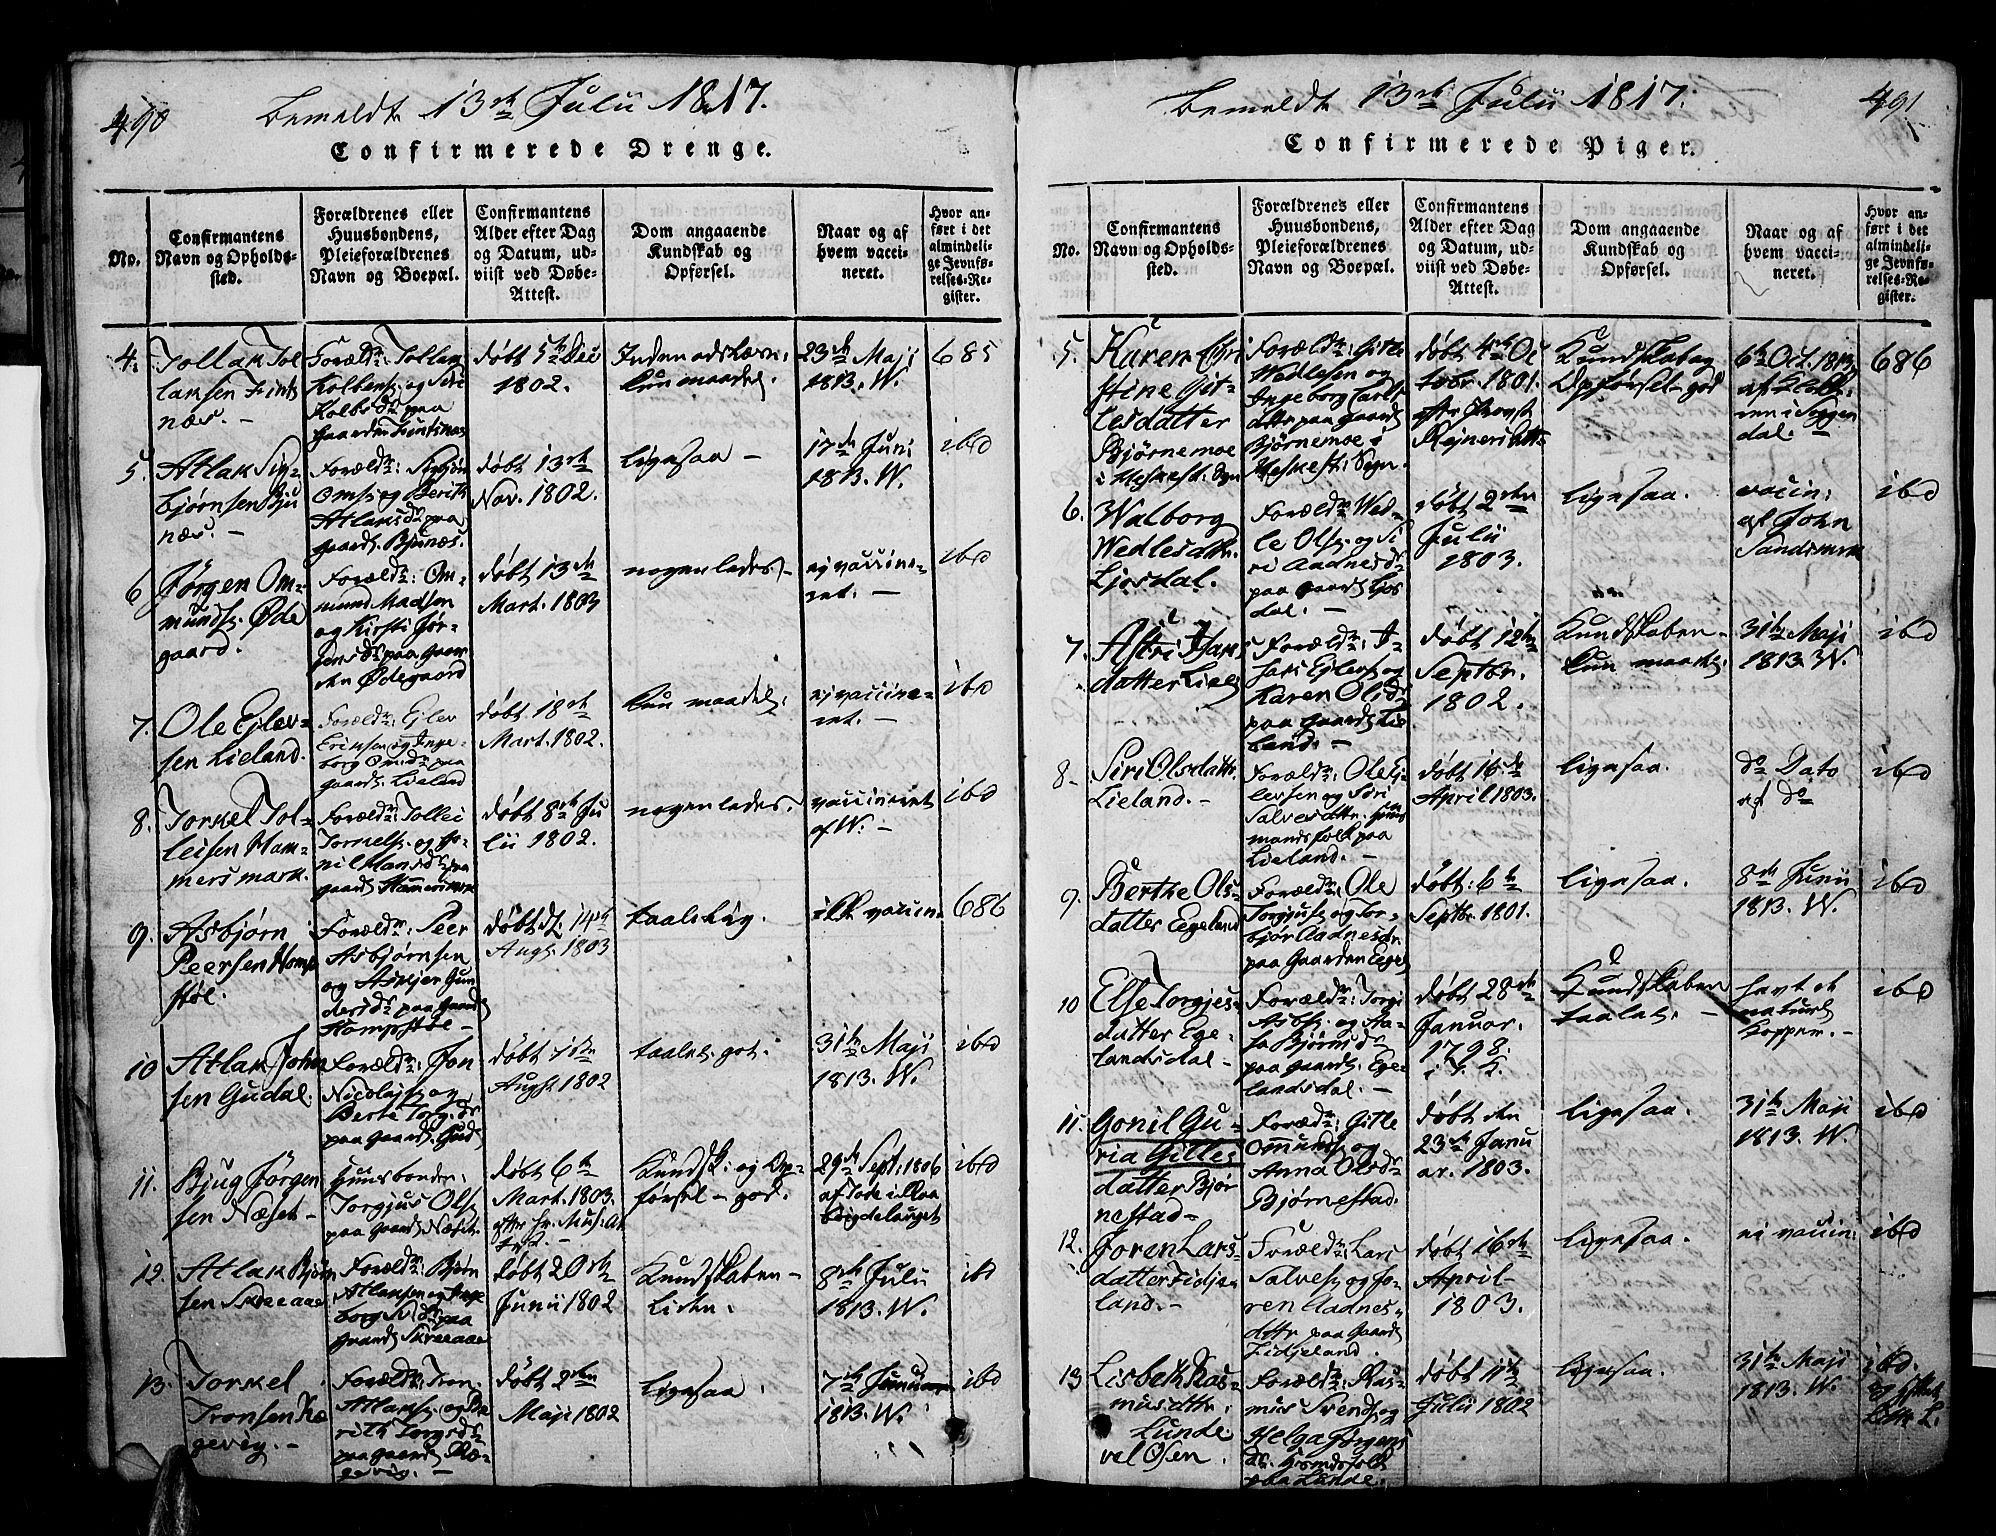 490
bemeldte 13de Julii 1817.
Confirmerede Drenge.
No.
Confirmantens Navn og Opholdssted.
Forældrenes eller Huusbondens, Pleieforældrenes Navn og Boepæl.
Confirmantens Alder efter Dag og Datum, udviist ved Døbe-Attest.
Dom angaaende Kundskab og Opførsel.
Naar og af hvem vaccineret.
Hvor anført i det almindelige Jevnførelses-Register.
4.
Tollak Tollaksen Fintsnæs. -
Foræld: Tollak Kolbens: og Siri Kolbsdr paa Gaarden Fintsnæs
døbt 5te Dec 1802.
23de Maji 1813. W.
685
5.
Atlak Sigbjørnsen Bjunæs. -
Foræld: Sigbjørn Oms: og Berith Atlaksdr paa gaard: Bjunæs.
døbt 13de Nov. 1802.
ligesaa -
17de Juni 1813. W.
ibd
6
Jørgen Ommunds: Ødegaard.
Foræld: Ommund Madsen og Kirsti Jørgensdr paa Gaarden Ødegaard
døbt 13de Mart. 1803
nogenledes -
ej vaccineret. -
ibd
7.
Ole Ejlevsen Lieland.
Foræld: Ejlev Ericsen og Ingeborg Omdr paa gaard: Lieland
døbt 18de Mart. 1802.
kun maadel:
ej vaccineret. -
ibd
8.
Torkel Tolleisen Hammersmark.
Foræld: Tollei Torkels: og Gonil Hansdr paa gaard: Hammersmark
døbt 8de Julii 1802.
nogenledes.
vaccineret af W. -
ibd
9.
Asbjørn Peersen Kompstøl.
Foræld: Peer Asbjørnsen og Askjer Gundersdr paa Gaard: Kompstøl -
døbt d. 14de Augs. 1803
taalelig.
ikke vaccin.
686
10
Atlak Johnsen Gudal.
Foræld: Jon Nicolajs: og Berte Torgsdr paa Gaard: Gudal
døbt 1ste Augst. 1802
taalel: got.
31te Maji 1813. W.
ibd
11.
Bjug Jørgensen Næset -
Huusbonde: Torgjus Ols: paa Gaard: Næset.
døbt 6te Mart. 1803.
Kundsk: og Opførsel - god.
29de Sept: 1806
ibd
12.
Atlak Bjørnsen Skreeaae
Foræld: Bjørn Atlaksen og Ingeborg paa Gaard: Skreeaae
døbt 20de Junii 1802
Kundskaben - liden.
8de Julii 1813. W.
ibd
13.
Torkel Tronsen Rægevig. -
Foræld: Tron Atlaks: og Berith Torgsdr paa gaard: Rægevig. -
døbt 2den Maji 1802
ligesaa.
7de Januar 1813. W.
ibd
491
bemeldte 13de Julii 1817.
Confirmerede Piger.
No.
Confirmantens Navn og Opholdssted.
Forældrenes eller Huusbondens, Pleieforældrenes Navn og Boepæl.
Confirmantens Alder efter Dag og Datum, udviist ved Døbe-Attest.
Dom angaaende Kundskab og Opførsel.
Naar og af hvem vaccineret.
Hvor anført i det almindelige Jevnførelses-Register.
5.
Karen Christine Gitlesdatter Bjørnemoe i Heskest: Sogn
Foræld: Gitle Wedlesen og Ingeborg Carlsdttr paa Gaard: Bjørnemoe i Heskest: Sogn.
døbt 4de Octobr. 1801.
Kundskab og Opførsel - god
6te Oct. 1813 i Soggendal. -
686
6.
Walborg Wedlesdttr. Liosdal.
Foræld: Wedle Ols: og Siri Aadnesdr paa gaard: Liosdal. -
døbt 2den Julii 1803.
ligesaa.
vaccin: af John Sandsmark
ibd
7.
Astri Isaksdatter Liel:
Foræld: Isak Ejlevs: og Karen Olsdr paa Gaard: Lieland. -
døbt 12te Septbr. 1802.
Kundskaben - kun maadel:
31te Maji 1813. W.
ibd
8.
Siri Olsdattr. Lieland. -
Foræld: Ole Ejlevsen og Siri Salvesdttr. Huusmandsfolk paa Lieland. -
døbt 16de April 1803.
ligesaa.
do Dato af do
ibd
9.
Berthe Olsdatter Eegeland
Foræld: Ole Torgjus: og Torbjør Aadnesdr paa Gaarden Eegel:
døbt: 6te Septbr. 1801.
ligesaa.
8de Junii 1813. W.
ibd
10
Else Torgjesdatter Egelandsdal. -
Foræld: Torgi Asbs: og Bjørnsdr paa gaard: Egelandsdal. -
døbt 28de Januar. 1798.
Kundskaben taalel: -
havt de naturl: Kopper. -
ibd
11.
Gonil Guria Gitlesdatter Bjørnestad -
Foræld: Gitle Ommunds: og Anna Olsdr Bjørnestad.
døbt den 23de Januar. 1803.
ligesaa.
31te Maji 1813. W.
ibd
12.
Joren Larsdatter Fidjeland. -
Foræld: Lars Salves: og Joren Aadnesdttr paa Gaard: Fidjeland.
døbt 16de April - 1803.
ligesaa.
ei vaccin:
ibd
13
Lisbeth Rasmusdttr. Lunde vel Osen.
Foræld: Rasmus Svends: og Helga Jørgensdr. paa Lunde.
døbt 11te Julii 1802
ligesaa.
31te Maji 1813. W.
ibd.